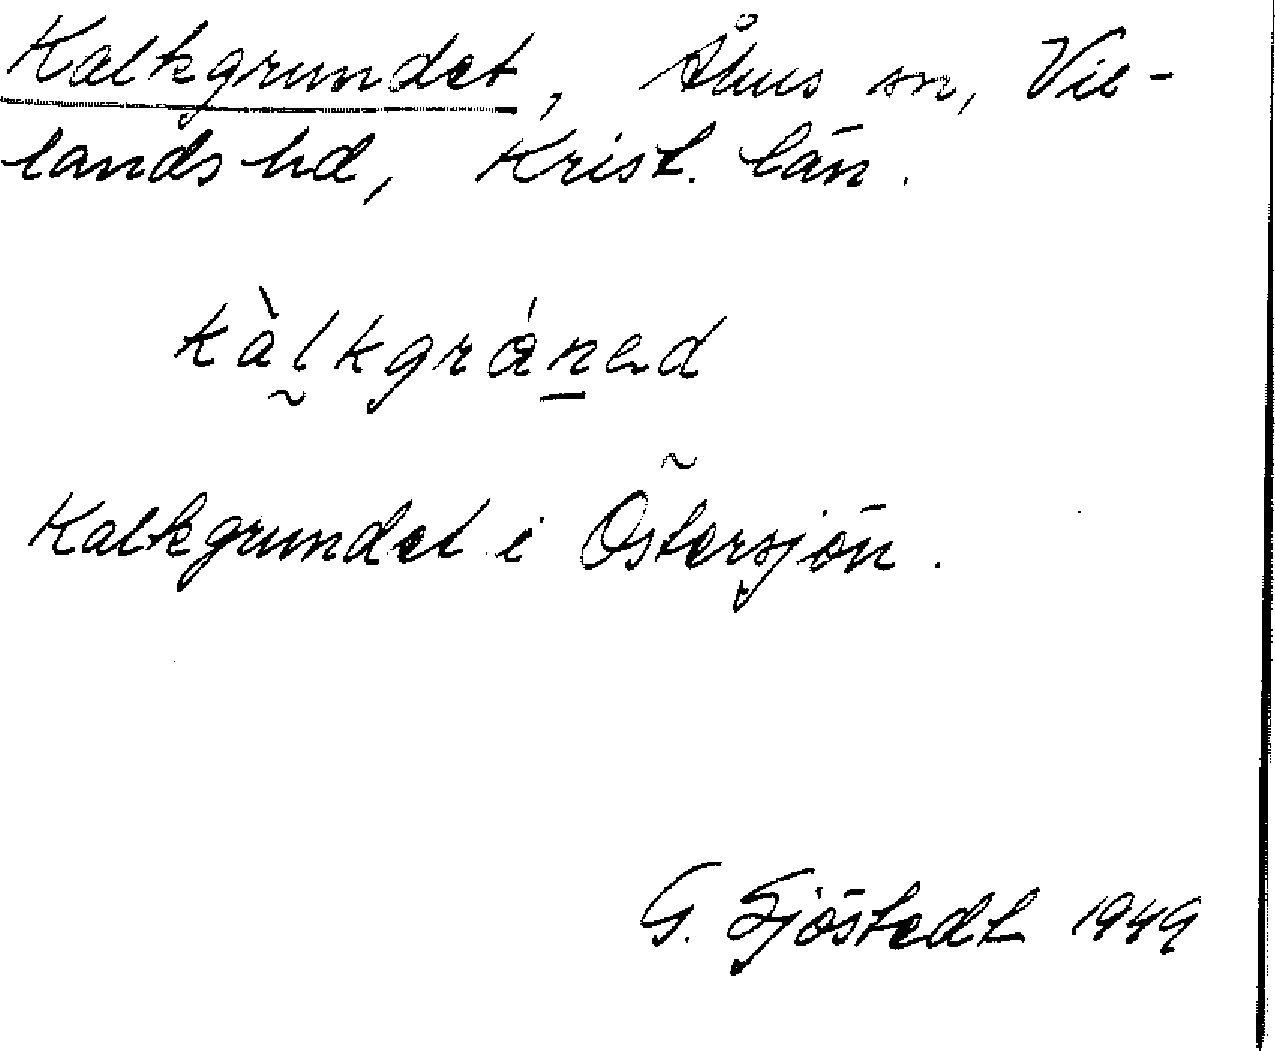 Kalkgrundet, Åhus sn, Vil-
lands hd, Krist. län.
kàlkgránad
Kalkgrundet i Östersjön.
G. Sjöstedt 1949